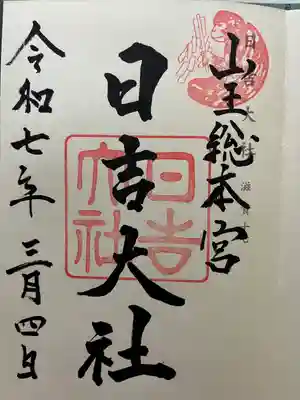 山王総本宮
日吉大社
令和七年三月四日
日吉大社
日吉大社